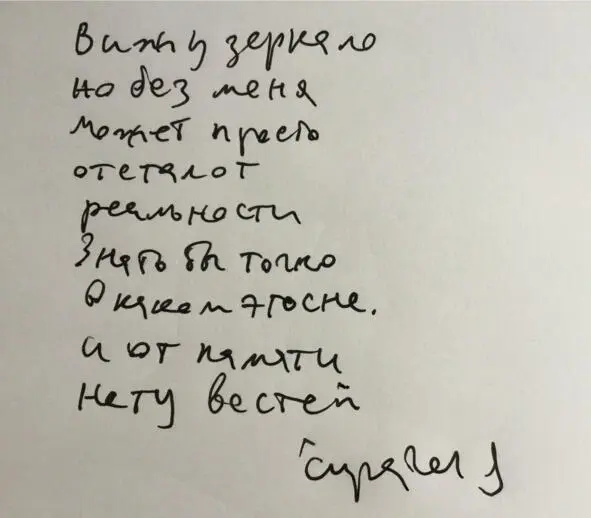 Вижу зеркало
но без меня
может просто
отсталот
реальности
Знать бы точко
В каком этосне.
и от памяти
нету вестей